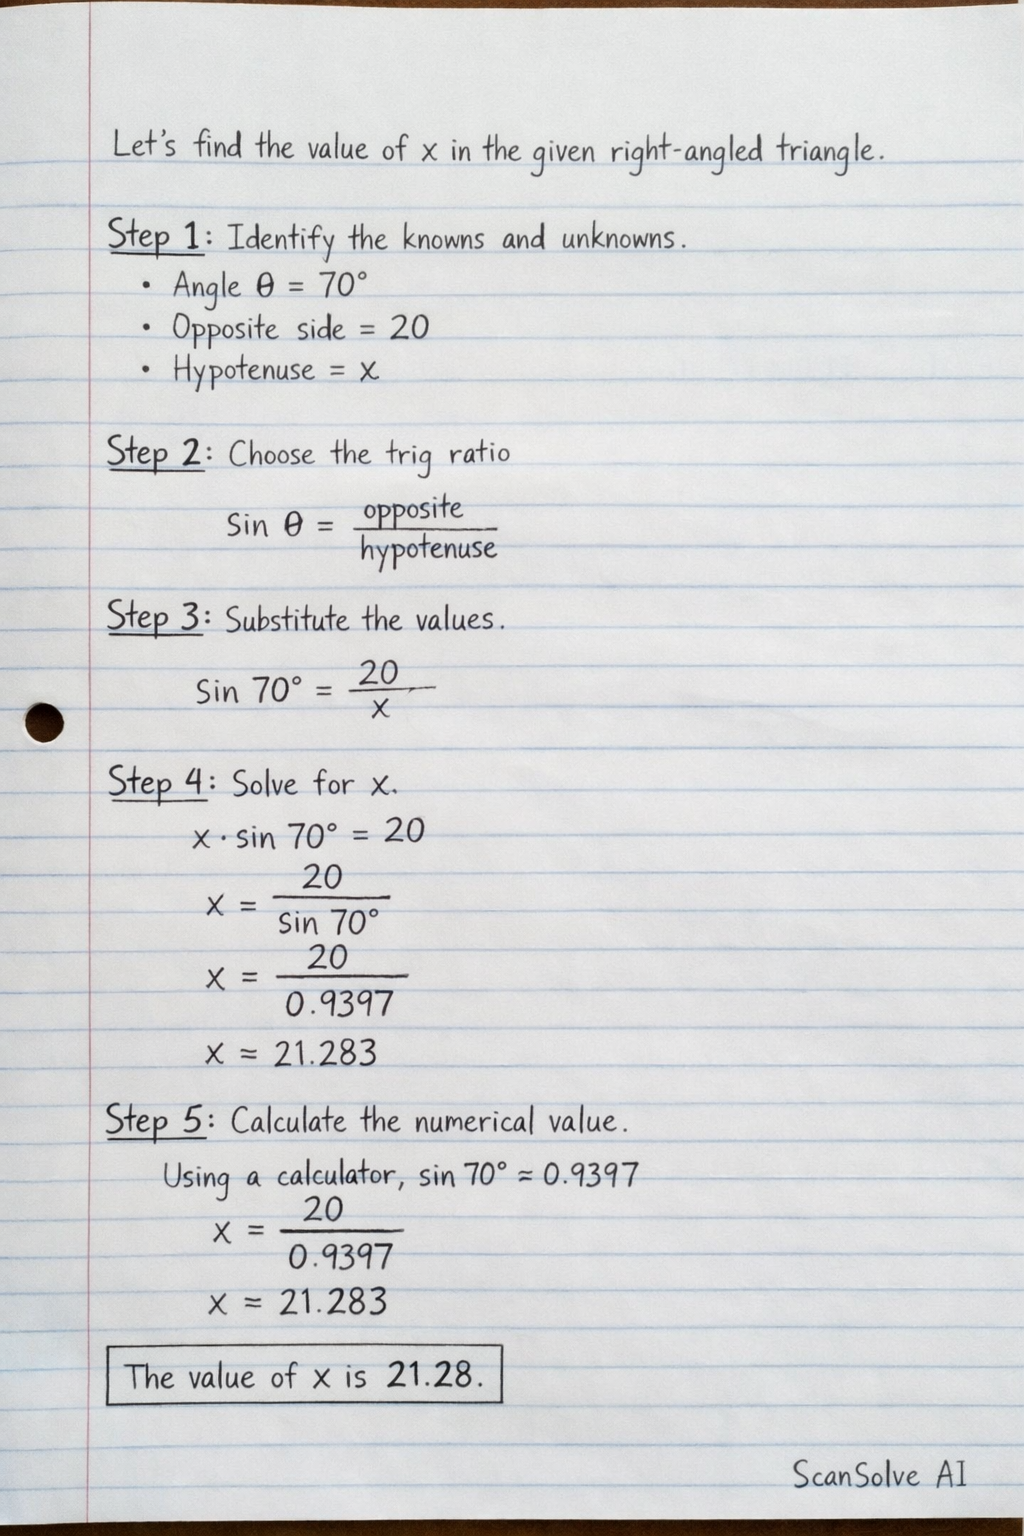 Let's find the value of x in the given right-angled triangle.
Step 1: Identify the knowns and unknowns.
• Angle θ = 70°
• Opposite side = 20
• Hypotenuse = x
Step 2: Choose the trig ratio
Sin θ = opposite / hypotenuse
Step 3: Substitute the values.
Sin 70° = 20 / x
Step 4: Solve for x.
x · sin 70° = 20
x = 20 / sin 70°
x = 20 / 0.9397
x ≈ 21.283
Step 5: Calculate the numerical value.
Using a calculator, sin 70° ≈ 0.9397
x = 20 / 0.9397
x ≈ 21.283
The value of x is 21.28.
ScanSolve AI